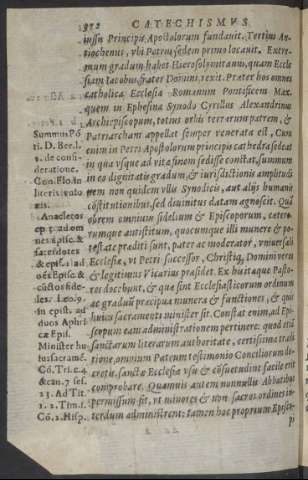 352
CATECHISMVS
iussu Principis Apostolorum fundauit. Tertius An-
tiochenus, vbi Petri sedem primo locauit. Extre-
mum gradum habet Hierosolymitanus, quam Eccle
siam Iacobus frater Domini rexit. Præter hos omnes
catholica Ecclesia Romanum Pontificem Max.
quem in Ephesina Synodo Cyrillus Alexandrinus
Archiepiscopum, totius orbis terrarum patrem, &
Patriarcham appellat semper venerata est, Cum
enim in Petri Apostolorum principis cathedra sedeat
in qua vsque ad vitæ finem sedisse constat, summum
in eo dignitatis gradum, & iurisdictionis amplitudi
nem non quidem vllis Synodicis, aut alijs humanis
cõstitutionibus, sed diuinitus datam agnoscit. Quã
obrem omnium fidelium & Episcoporum, cetero-
rumque antistitum, quocunque illi munere & po-
testate prediti sunt, pater ac moderator, vniuersali
Ecclesiæ, vt Petri successor, Christiq; Domini verus
& legitimus Vicarius præsidet. Ex his itaque Pasto-
res docebunt, & quæ sint Ecclesiasticorum ordinum
ac graduũ præcipua munera & functiones, & quis
huius sacramenti minister sit. Constat enim, ad Epi-
scopum eam administrationem pertinere: quod etiã
sanctarum literarum authoritate, certissima tradi
tione, omnium Patrum testimonio Conciliorum de-
cretis, sanctæ Ecclesiæ vsu & cõsuetudine facile erit
comprobare. Quamuis autem nonnullis Abbatibus
permissum sit, vt minores & non sacros ordines in-
terdum administrent: tamen hoc proprium Episco-
Summus Põ
ti. D. Ber. l.
2. de consi-
deratione.
Con. Flo. in
literis vnio
nis.
Anacletos
ep. 2. ad om
nes episc. &
sacerdotes
& epis. 1. ad
oẽs Episc. &
cũctos fide-
les. Leo. 9.
in epist. ad
duos Aphri
cæ Epis.
Minister hu
ius sacramẽ.
Cõ. Tri. c. 4
& can. 7 ses.
23. Ad Tit.
1. 2. Tim. 1.
Cõ. 2. Hisp.